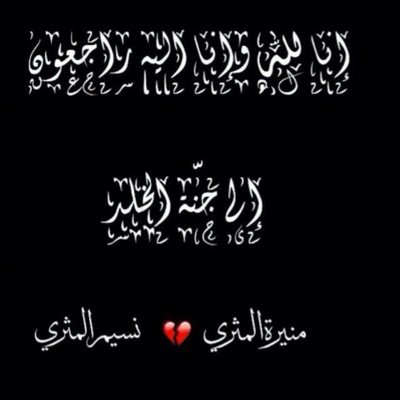 إنا لله وإنا اليه راجعون
إلى جنّة الخلد
منيرة المثري 💔 نسيم المثري